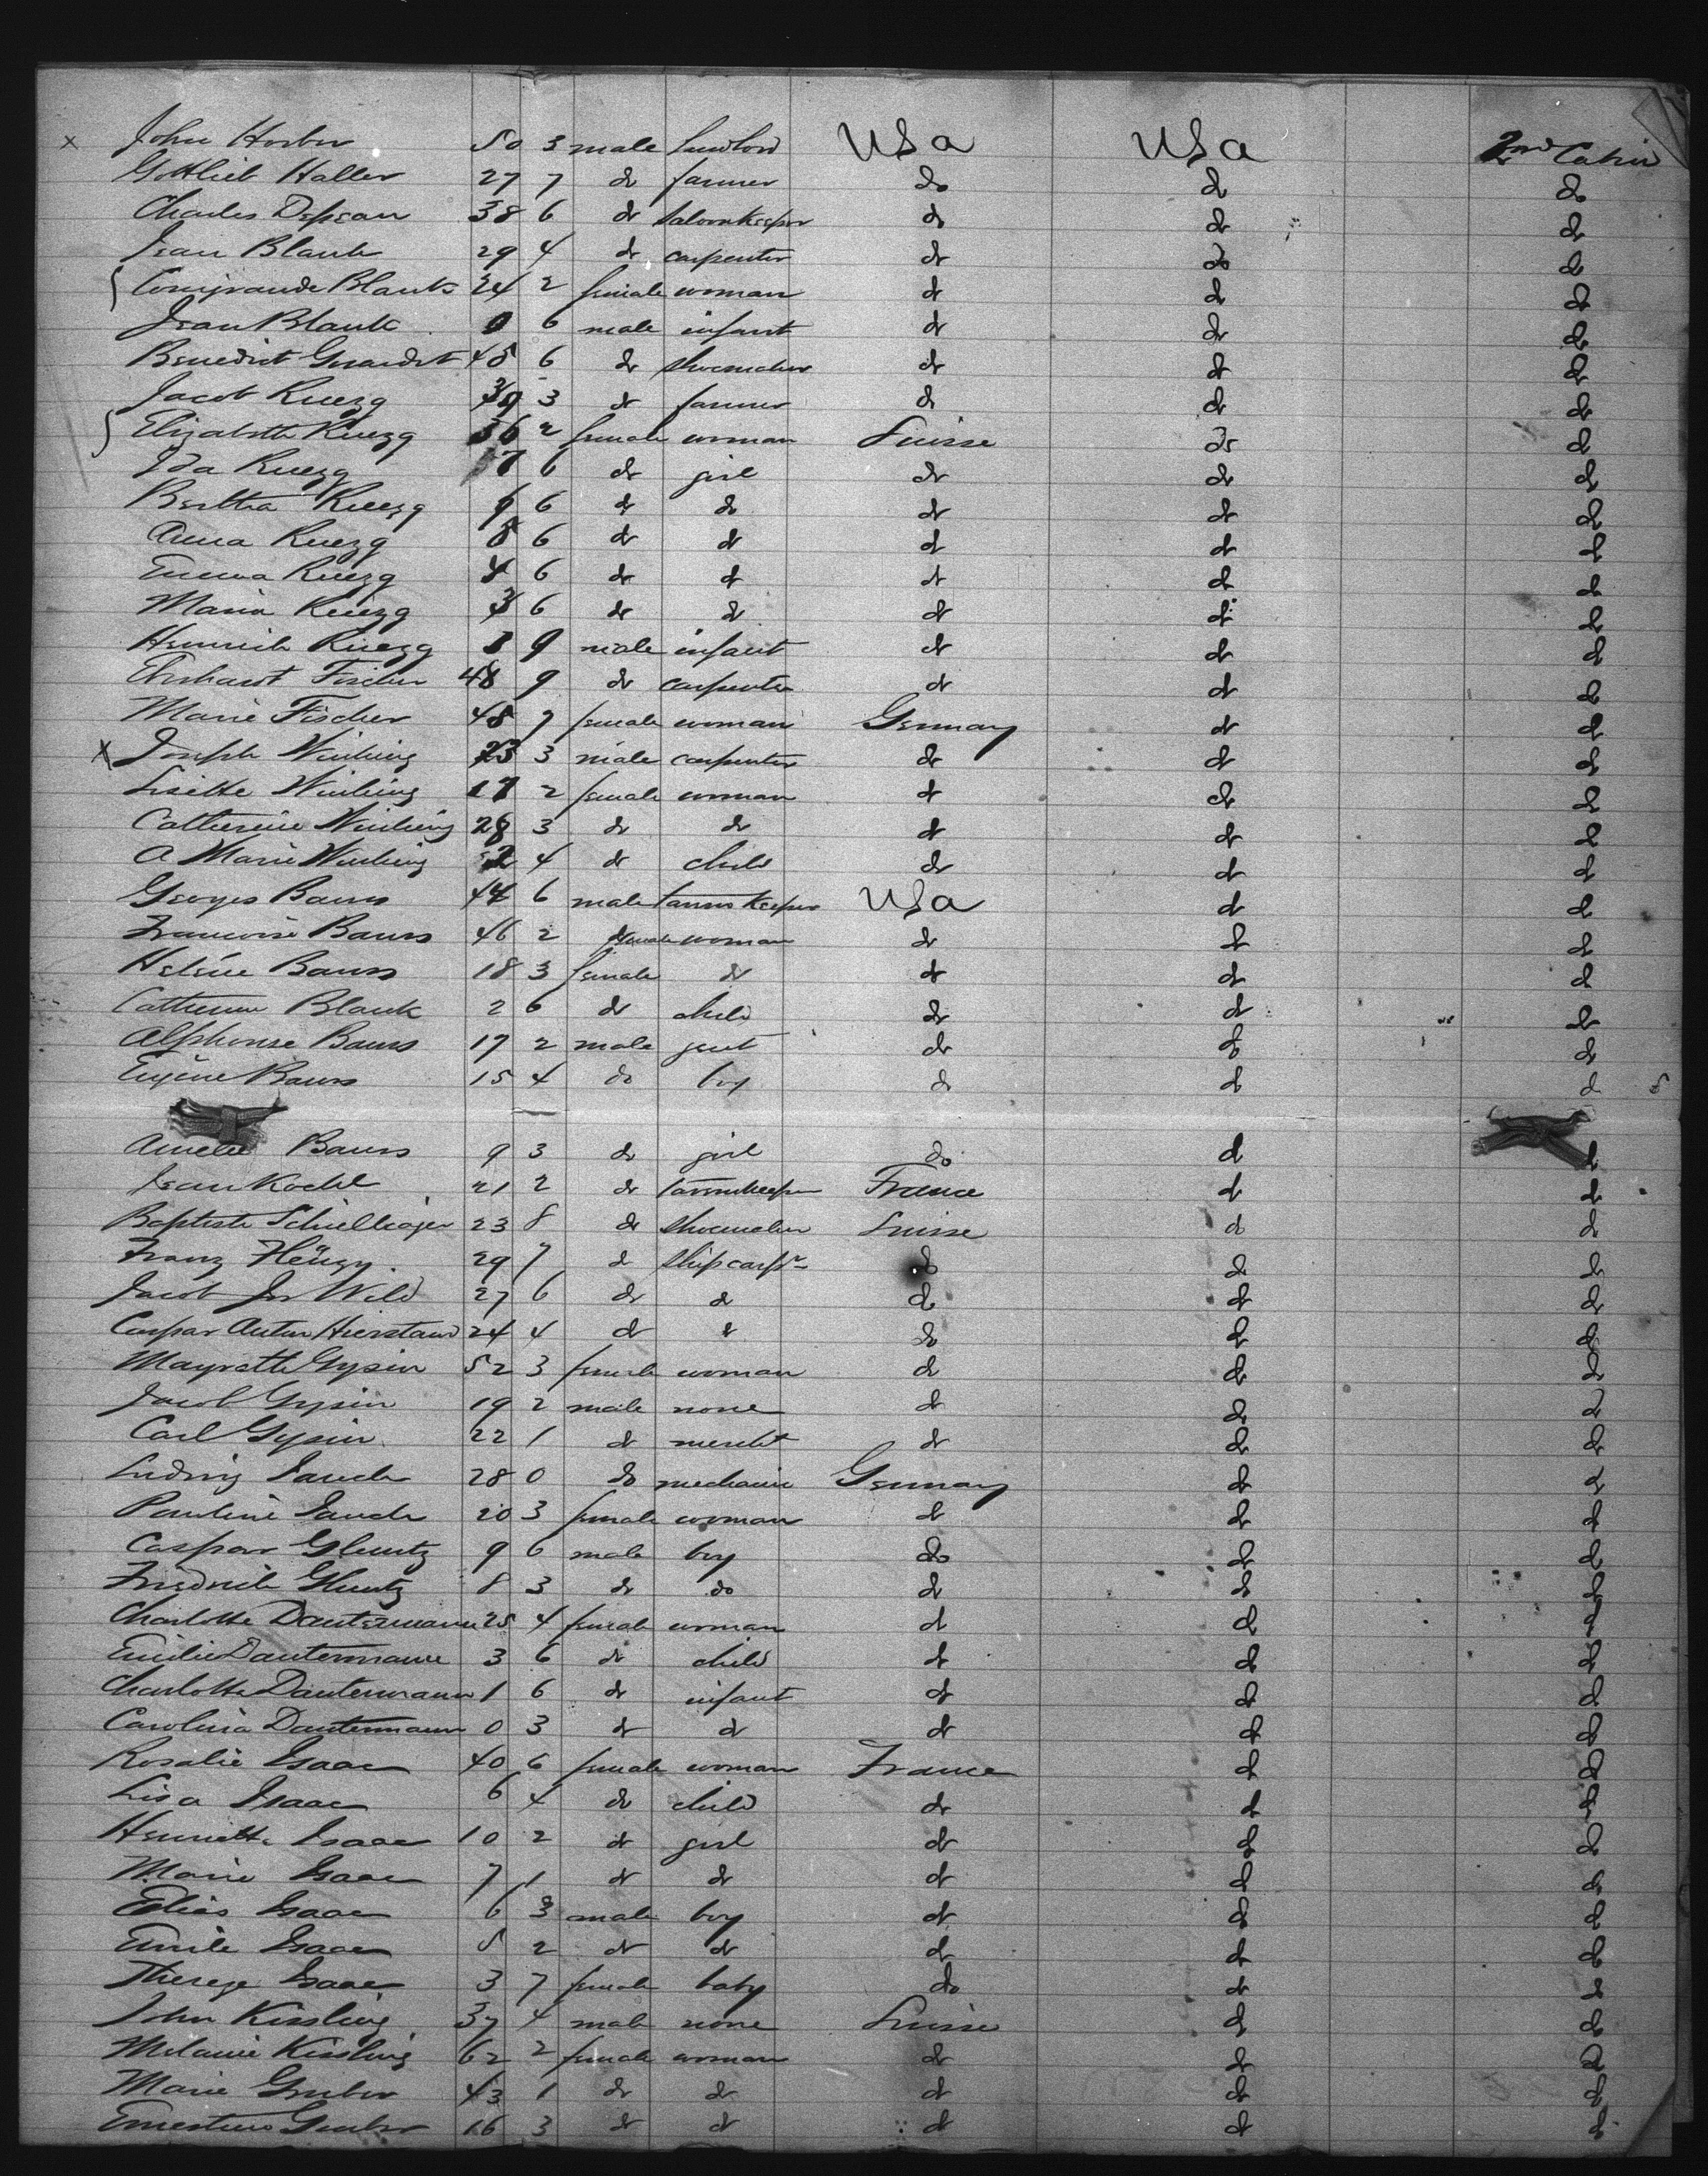 x John 50 3 male USA USA 2nd Cabin
Gottlieb Haller 27 7 do farmer do do do
Charles 38 6 do saloonkeeper do do do
Jean Blank 29 4 do carpenter do do do
Blank 24 2 female woman do do do
Jean Blank 0 6 male infant do do do
Benedict 45 6 do shoemaker do do do
Jacob Ruegg 39 3 do farmer do do do
Elizabeth Ruegg 36 2 female woman Suisse do do
Ida Ruegg 7 6 do girl do do do
Bertha Ruegg 6 do do do do do
Anna Ruegg 6 do do do do do
Emma Ruegg 4 6 do do do do do
Maria Ruegg 3 6 do do do do do
Heinrich Ruegg 9 male infant do do do
Fischer 48 9 do carpenter do do do
Marie Fischer 48 7 female woman Germany do do
x Joseph 23 3 male carpenter do do do
Lisette 17 2 female woman do do do
Catherine 28 3 do do do do do
A Marie 2 4 do child do do do
Georges Baurs 44 6 male USA do do
Francoise Baurs 46 2 female woman do do do
Helène Baurs 18 3 female do do do do
Catherine Blank 2 6 do child do do do
Alphonse Baurs 17 2 male gent do do do
Eugène Baurs 15 4 do boy do do do
Amelie Baurs 9 3 do girl do do do
Jean Kochl 21 2 do France do do
Baptiste 23 8 do shoemaker Suisse do do
Franz 29 7 do shipcarpr do do do
Jacob Wild 27 6 do do do do do
Caspar Anton Hierstand 24 4 do do do do do
Gysin 52 3 female woman do do do
Jacob Gysin 19 2 male none do do do
Carl Gysin 22 1 do mercht do do do
Ludwig 28 0 do mechanic Germany do do
Pauline 20 3 female woman do do do
Caspar Gluntz 9 6 male boy do do do
Friedrich Gluntz 8 3 do do do do do
Charlotte Dautermann 25 4 female woman do do do
Emilie Dautermann 3 6 do child do do do
Charlotte Dautermann 1 6 do infant do do do
Carolina Dautermann 0 3 do do do do do
Rosalie Isaac 40 6 female woman France do do
Lisa Isaac 6 4 do child do do do
Henriette Isaac 10 2 do girl do do do
Marie Isaac 7 1 do do do do do
Elias Isaac 6 3 male boy do do do
Emile Isaac 5 2 do do do do do
Therese Isaac 3 7 female baby do do do
John Kissling 37 4 male none Suisse do do
Melanie Kissling 62 2 female woman do do do
Marie Gruber 43 1 do do do do do
Gruber 16 3 do do do do do